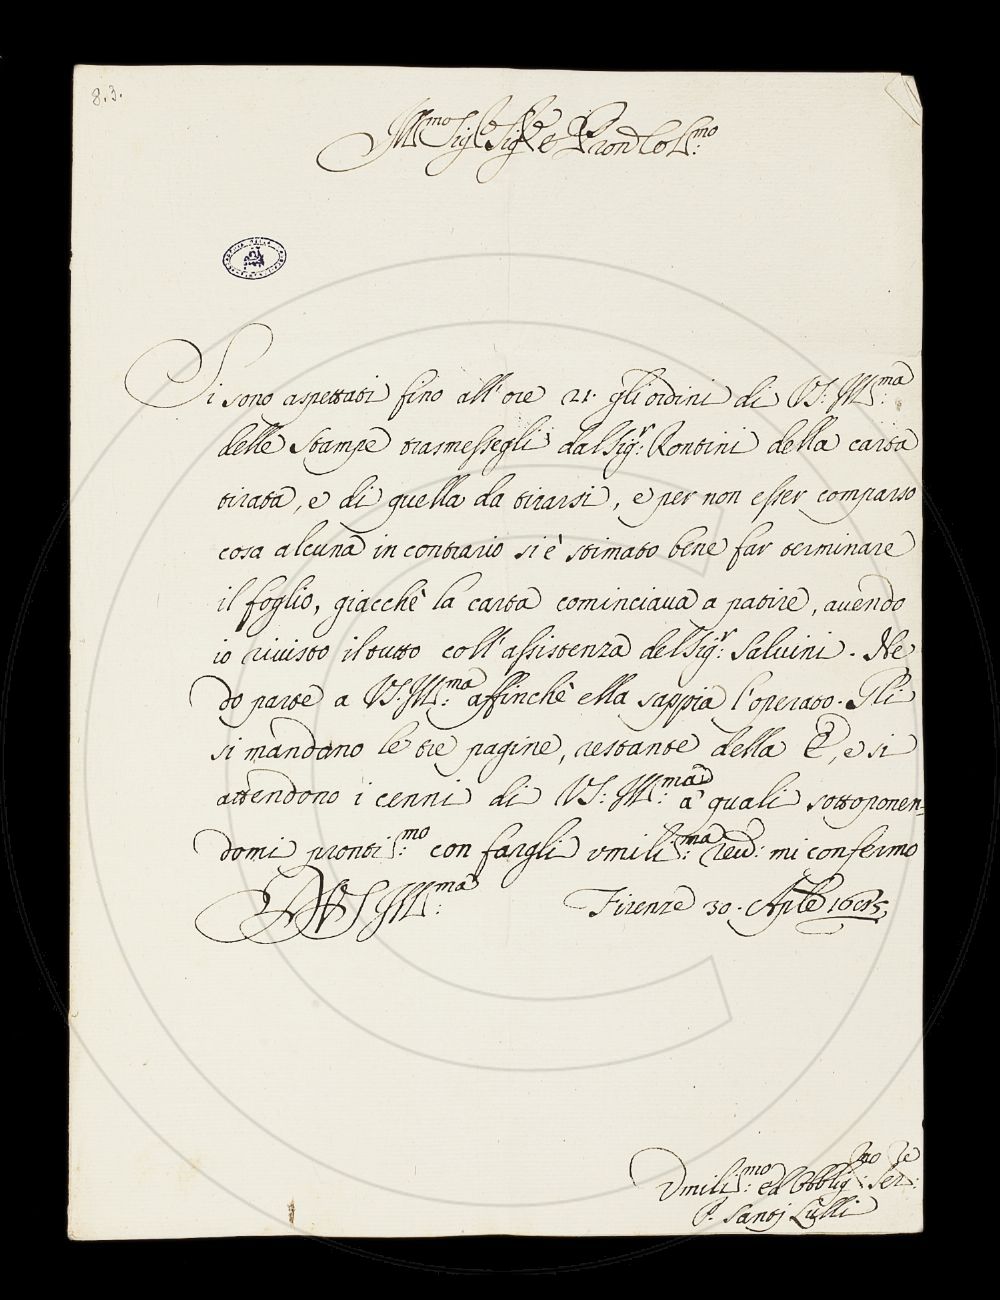 83.
Ill:mo Sig:re Sig:re e Pron Col:mo
Si sono aspettati fino all'ore 21. gli ordini di VS: Ill:ma
delle stampe trasmessegli dal Sig:r Rontini della carta
tirata, e di quella da tirarsi, e per non esser comparso
cosa alcuna in contrario si è stimato bene far terminare
il foglio, giacchè la carta cominciava a patire, avendo
io rivisto il tutto coll'assistenza del Sig:r Salvini. Ne
do parte a VS: Ill:ma affinchè ella sappia l'operato. Gli
si mandano le tre pagine, restante della E, e si
attendono i cenni di VS: Ill:ma a' quali sottoponen=
domi pronti:mo con fargli umili:ma rev: mi confermo
Di VS Ill:ma Firenze 30. Aple
Umili:mo ed Obblig:mo Ser:re
P. Santi Lulli